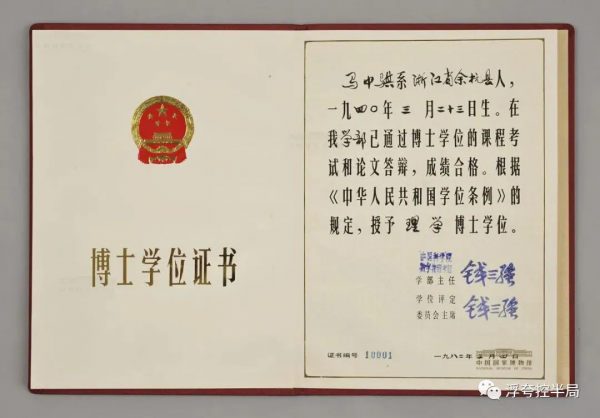 博士学位证书
马中骐系浙江省余杭县人，
一九四〇年三月二十三日生。在
我学部已通过博士学位的课程考
试和论文答辩，成绩合格。根据
《中华人民共和国学位条例》的
规定，授予理学博士学位。
学部主任 钱三强
学位评定
委员会主席 钱三强
证书编号 10001
一九八二年 月 日
中国国家博物馆
NATIONAL MUSEUM OF CHINA
浮夸控半局